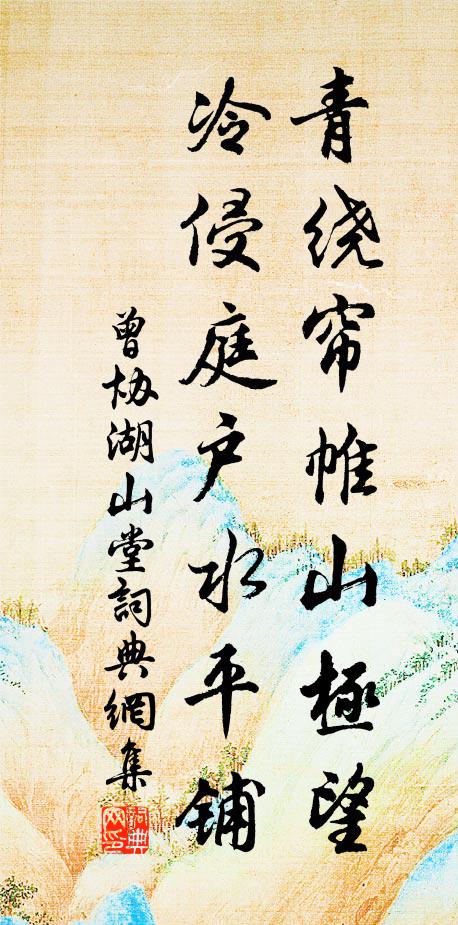 青绕帘帷山極望
冷侵庭户水平铺
曾协湖山堂詞典網集
詞典